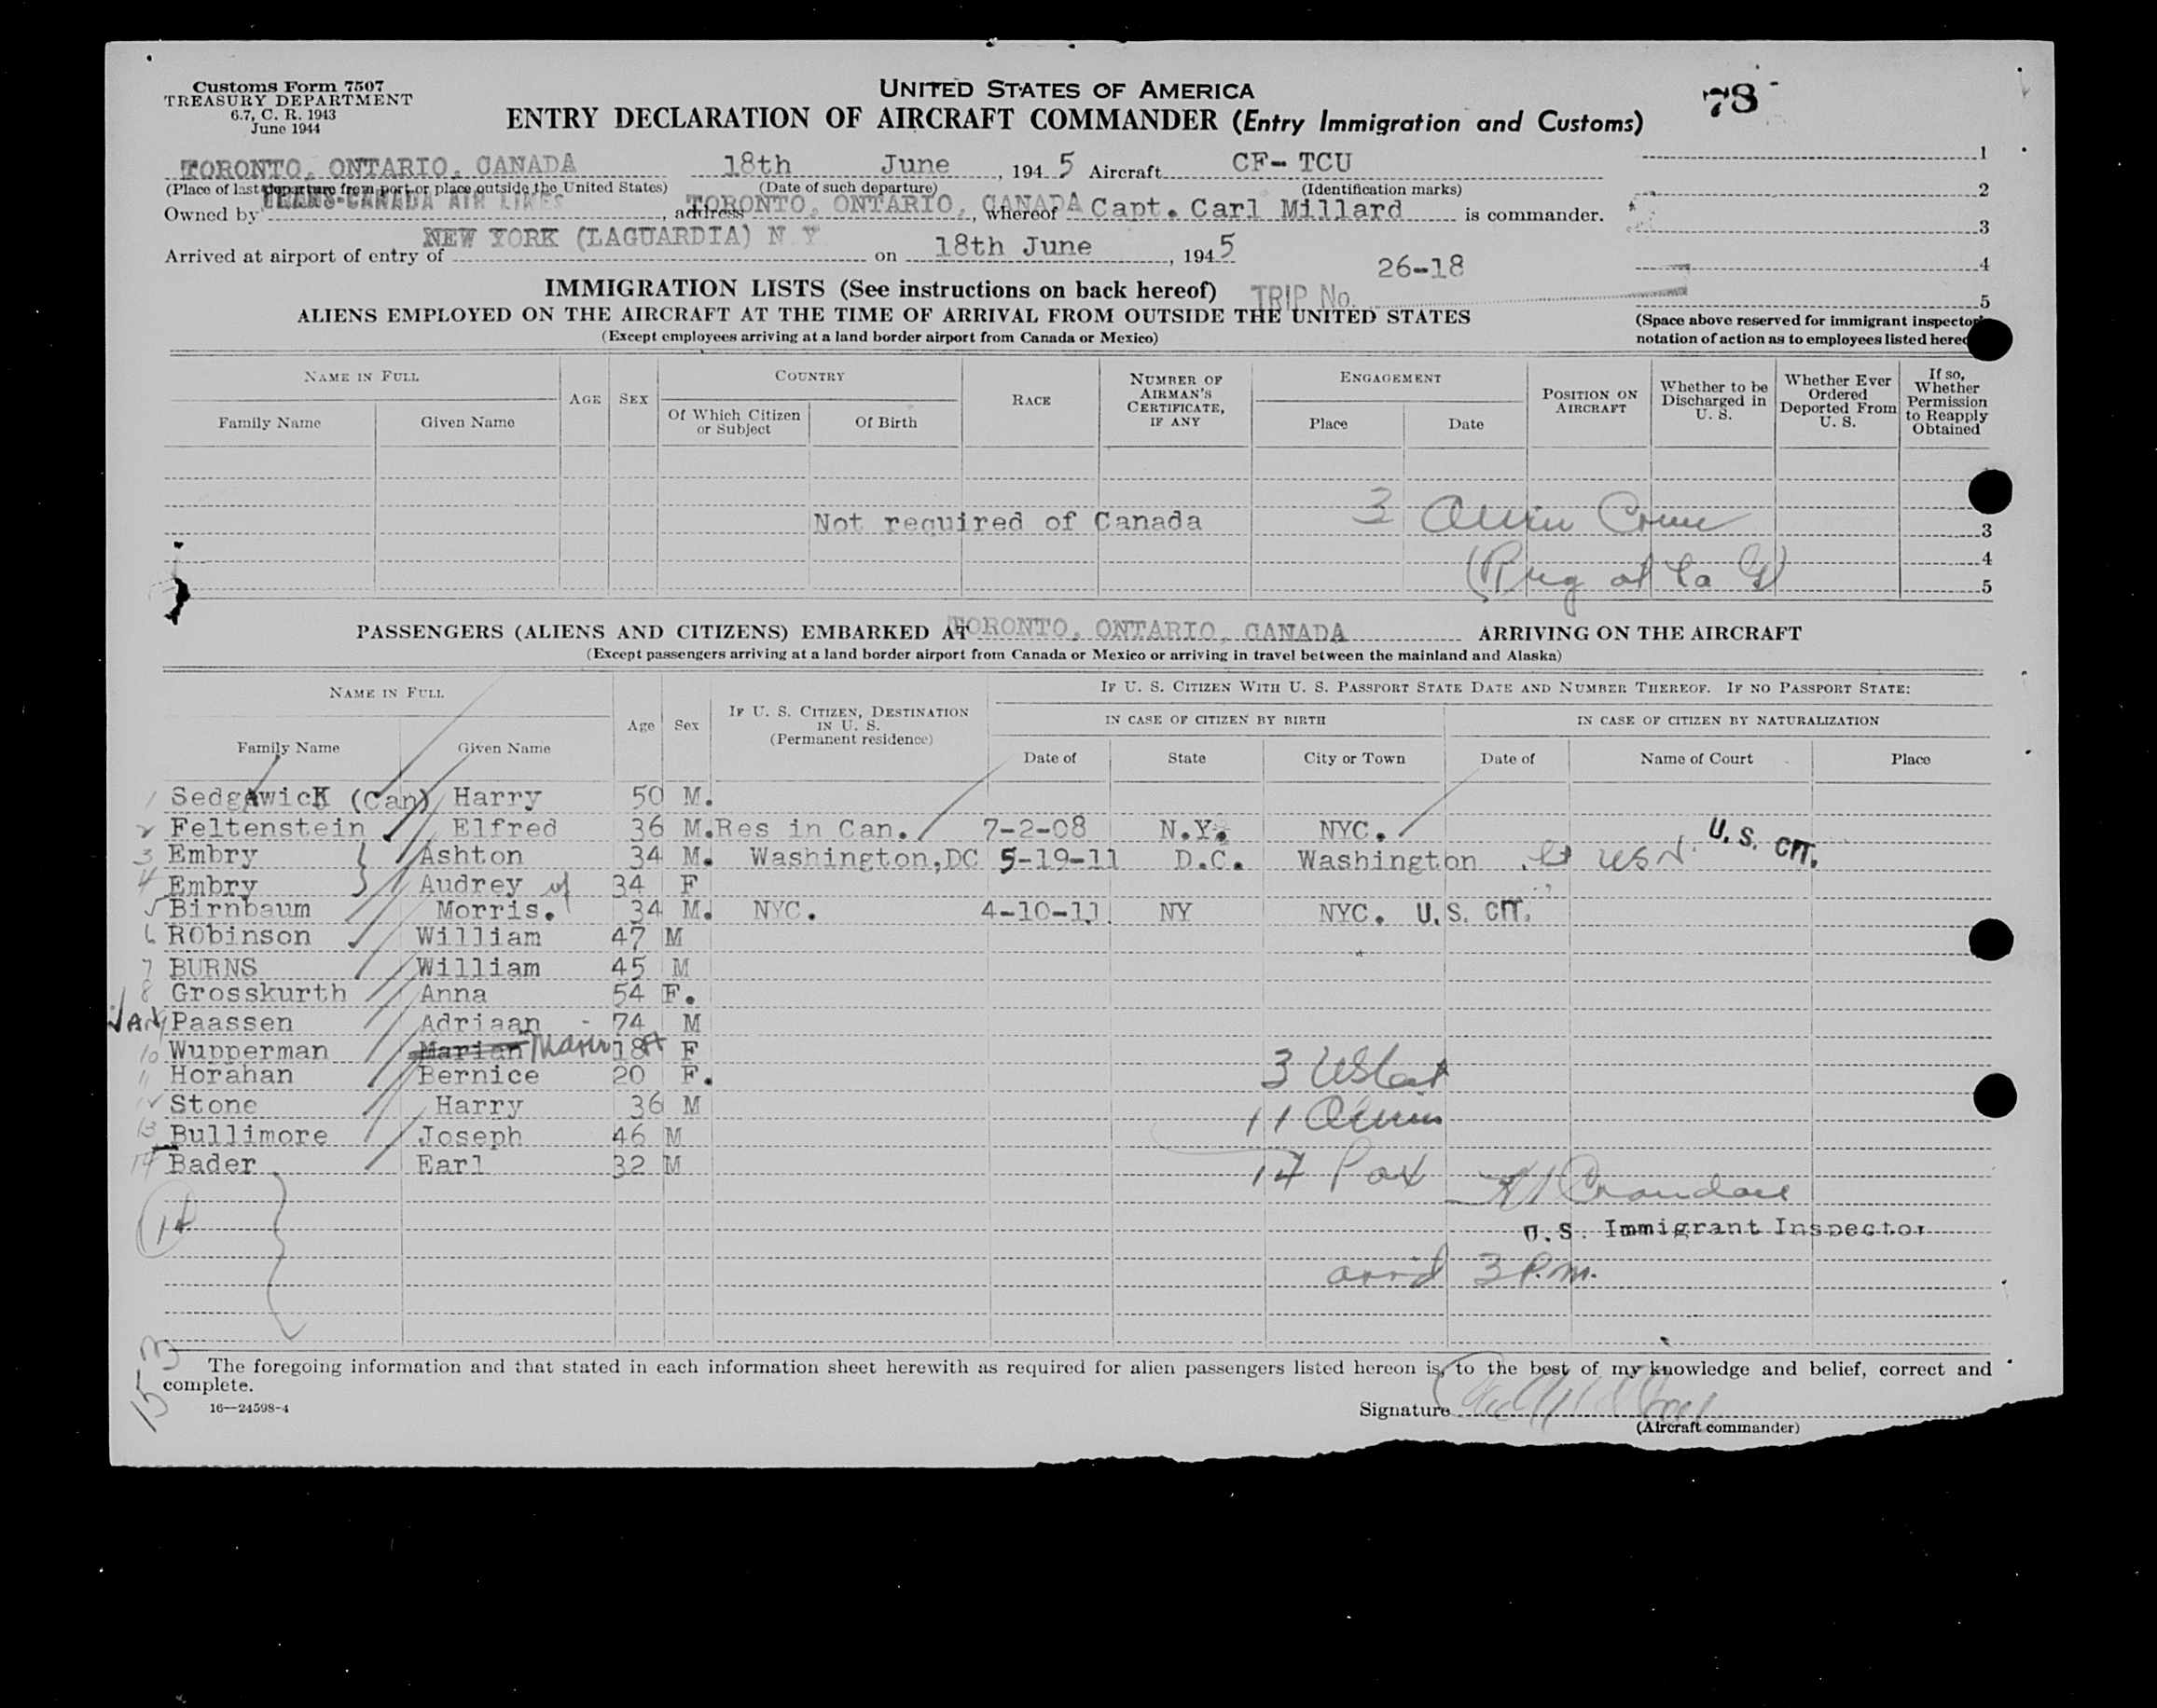 Customs Form 7507
TREASURY DEPARTMENT
6.7, C. R. 1943
June 1944
UNITED STATES OF AMERICA
ENTRY DECLARATION OF AIRCRAFT COMMANDER (Entry Immigration and Customs)
78
TORONTO, ONTARIO, CANADA 18th June, 1945 Aircraft CF-TCU
(Place of last departure from port or place outside the United States) (Date of such departure) (Identification marks)
Owned by TRANS-CANADA AIR LINES, address TORONTO, ONTARIO, CANADA, whereof Capt. Carl Millard is commander.
Arrived at airport of entry of NEW YORK (LAGUARDIA) N Y on 18th June, 1945
1
2
3
4
5
(Space above reserved for immigrant inspector's
notation of action as to employees listed hereon
26-18
IMMIGRATION LISTS (See instructions on back hereof) TRIP No.
ALIENS EMPLOYED ON THE AIRCRAFT AT THE TIME OF ARRIVAL FROM OUTSIDE THE UNITED STATES
(Except employees arriving at a land border airport from Canada or Mexico)
NAME IN FULL AGE SEX COUNTRY RACE NUMBER OF AIRMAN'S CERTIFICATE, IF ANY ENGAGEMENT POSITION ON AIRCRAFT Whether to be Discharged in U. S. Whether Ever Ordered Deported From U. S. If so, Whether Permission to Reapply Obtained
Family Name Given Name Of Which Citizen or Subject Of Birth Place Date
Not required of Canada 3
3
4
5
PASSENGERS (ALIENS AND CITIZENS) EMBARKED AT TORONTO, ONTARIO, CANADA ARRIVING ON THE AIRCRAFT
(Except passengers arriving at a land border airport from Canada or Mexico or arriving in travel between the mainland and Alaska)
NAME IN FULL Age Sex IF U. S. CITIZEN, DESTINATION IN U. S. (Permanent residence) IF U. S. CITIZEN WITH U. S. PASSPORT STATE DATE AND NUMBER THEREOF. IF NO PASSPORT STATE:
IN CASE OF CITIZEN BY BIRTH IN CASE OF CITIZEN BY NATURALIZATION
Family Name Given Name Date of State City or Town Date of Name of Court Place
1 Sedgewick (Can) Harry 50 M.
2 Feltenstein Elfred 36 M. Res in Can. 7-2-08 N.Y. NYC. U.S. CIT.
3 Embry Ashton 34 M. Washington,DC 5-19-11 D.C. Washington Lt USN
4 Embry Audrey 34 F
5 Birnbaum Morris. 34 M. NYC. 4-10-11 NY NYC. U.S. CIT.
6 RObinson William 47 M
7 BURNS William 45 M
8 Grosskurth Anna 54 F.
VAN Paassen Adriaan - 74 M
10 Wupperman Marian 18 F
11 Horahan Bernice 20 F.
12 Stone Harry 36 M
13 Bullimore Joseph 46 M
14 Bader Earl 32 M
3
11
14 Pax
14
U.S. Immigrant Inspector
arrid 3 P.M.
The foregoing information and that stated in each information sheet herewith as required for alien passengers listed hereon is, to the best of my knowledge and belief, correct and
complete.
16—24598-4
Signature
(Aircraft commander)